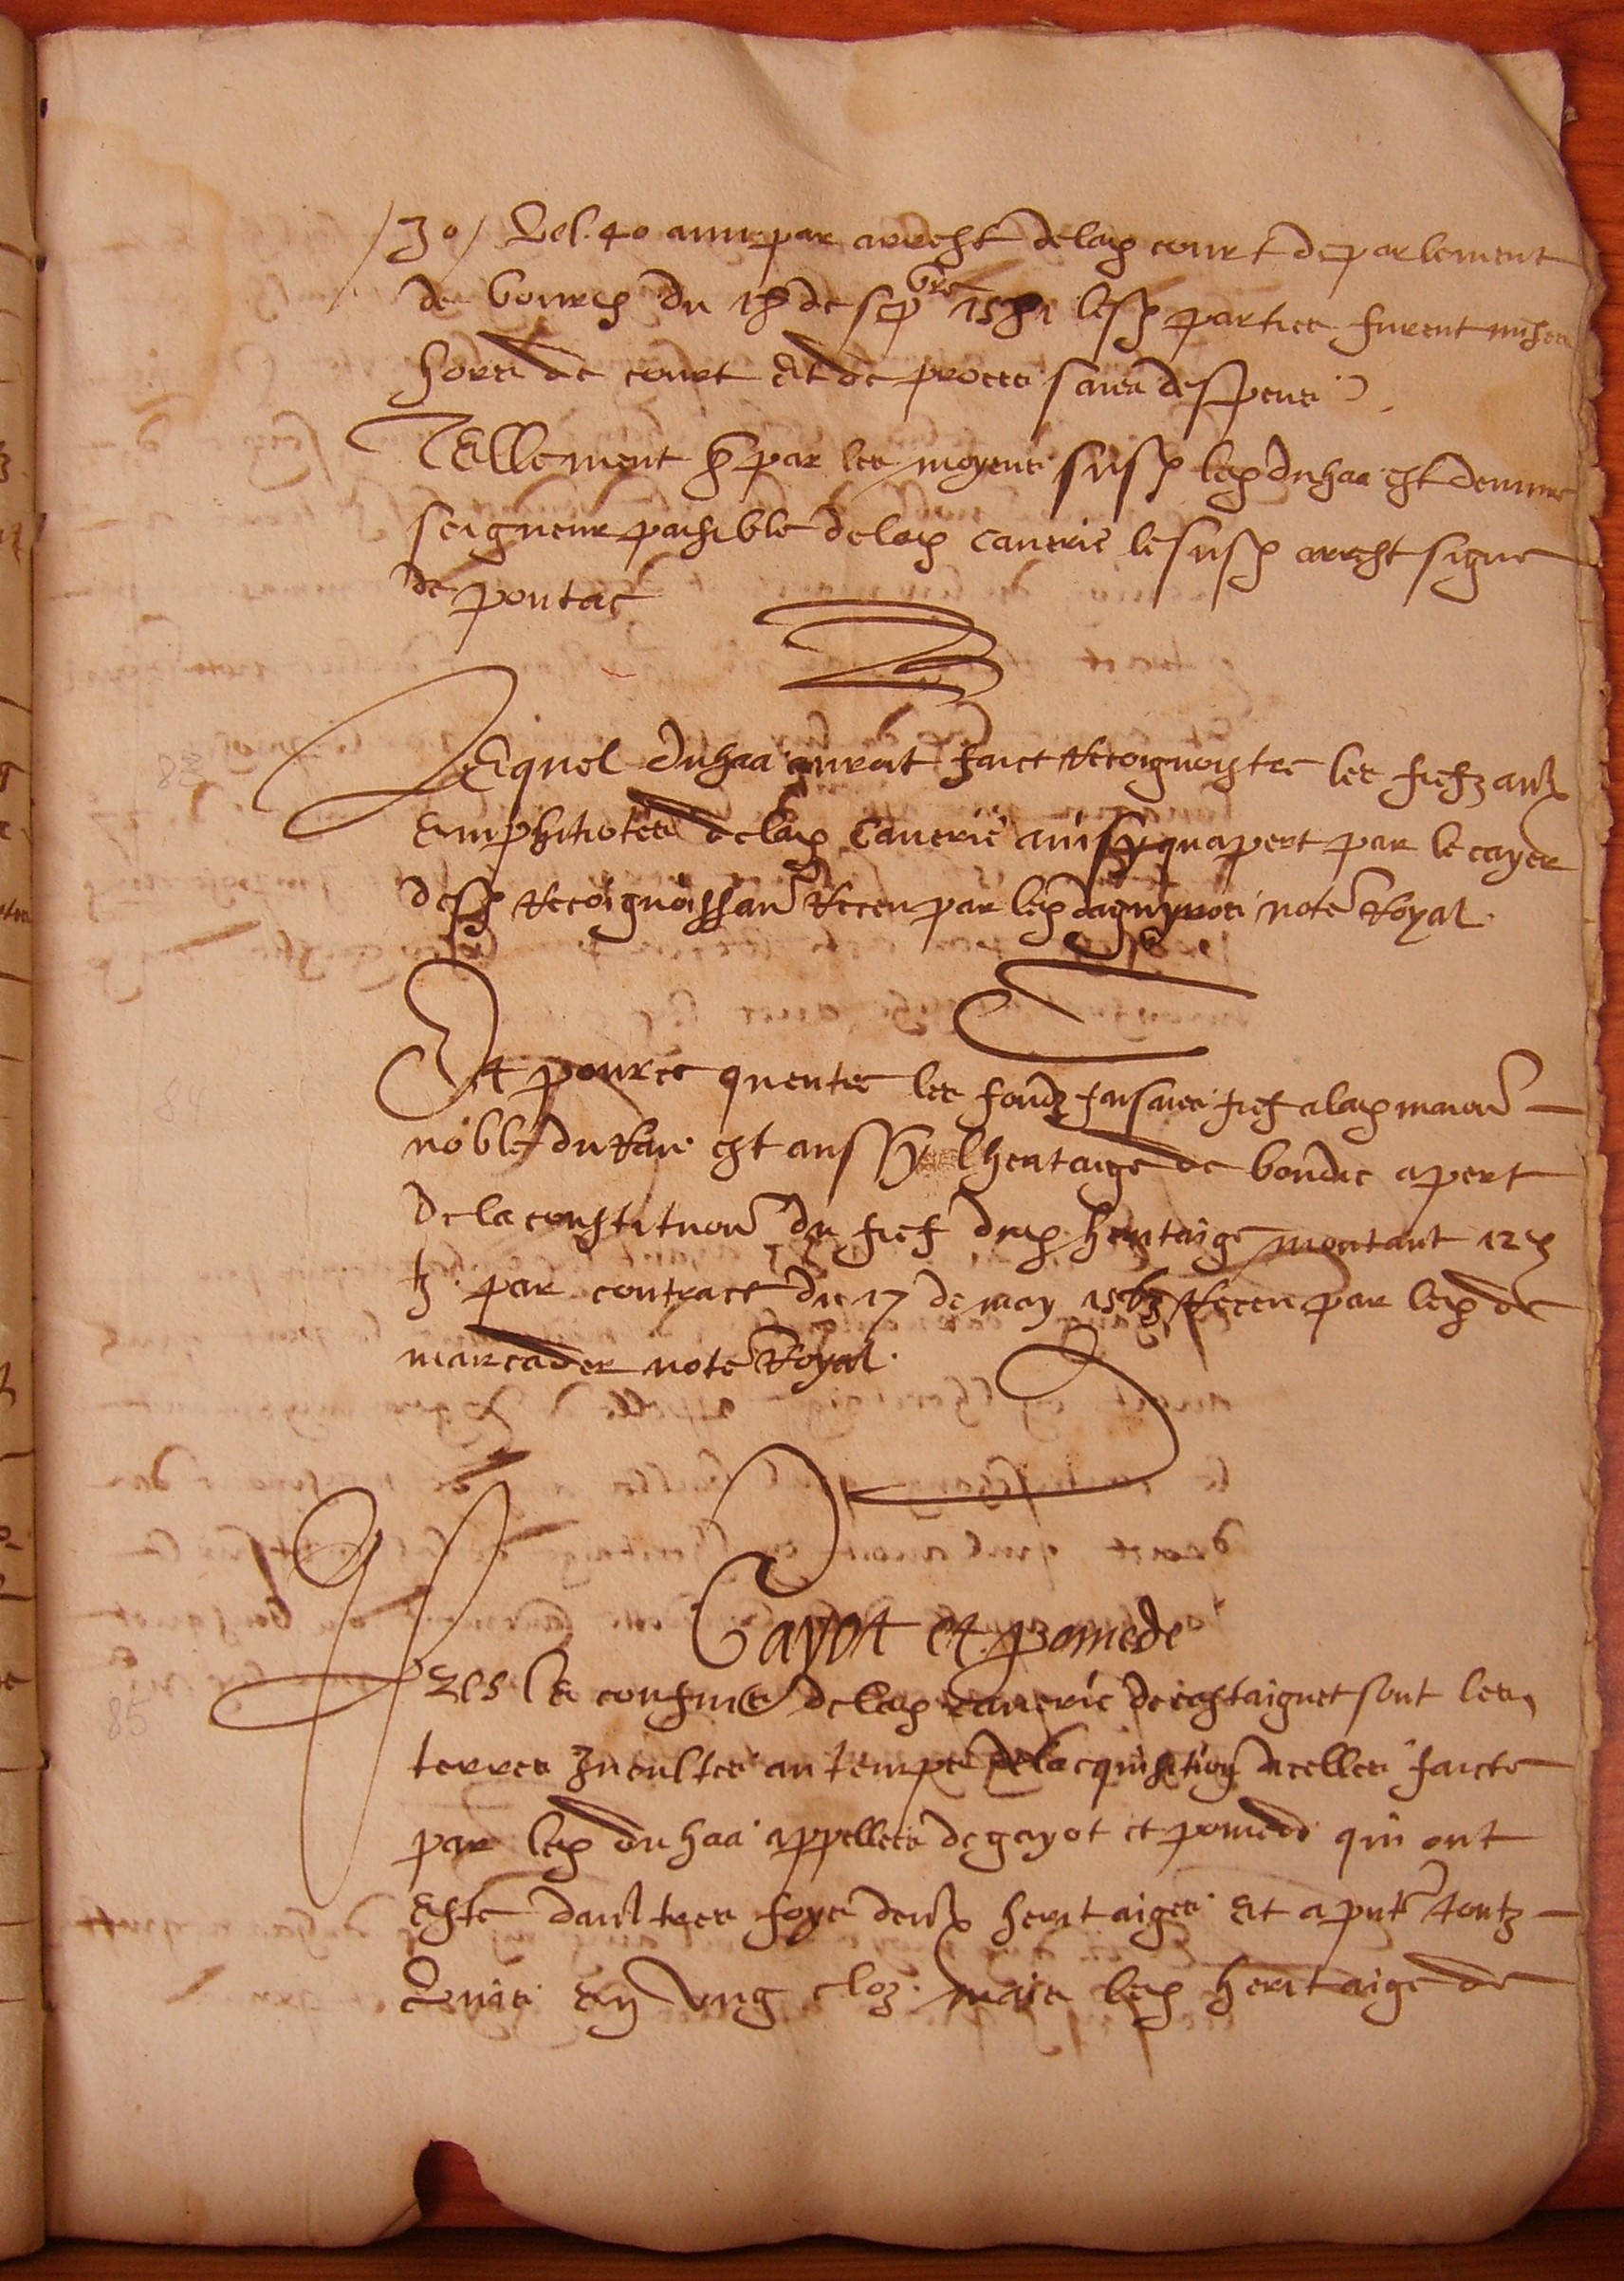 de bourd du 18 de sepbre 1581 lesd parties furent mises
hors de court et de proces sans despens
Tellement q par les moyens susd led duhaa est demure
seigneur paisible de lad caverie le susd arrest signe
de pontac
83
Lequel duhaa auroit faict recoignoistre les fiefz aulx
emphitiotes de lad caverie ainsy quapert par le cayer
desd recoignoissan receu par led note Royal
84
Et pource quentre les fondz faisans fief a lad maion
noble du est aussy lheritaige de boudic apert
De la constituon du fief dud heritaige montant 12 d
tz par contract du 17 de may 1563 receu par led de
marcader note Royal
Gayot et pomede
85
lad caverie de castaignet sont les
terres Incultes au temps de lacquisition dicelles faicte
par led duhaa appellees de gayot et pomede qui ont
este daultres foys deulx heritaiges Et a pnt toutz
Reunis En ung cloz mais led heritaige de